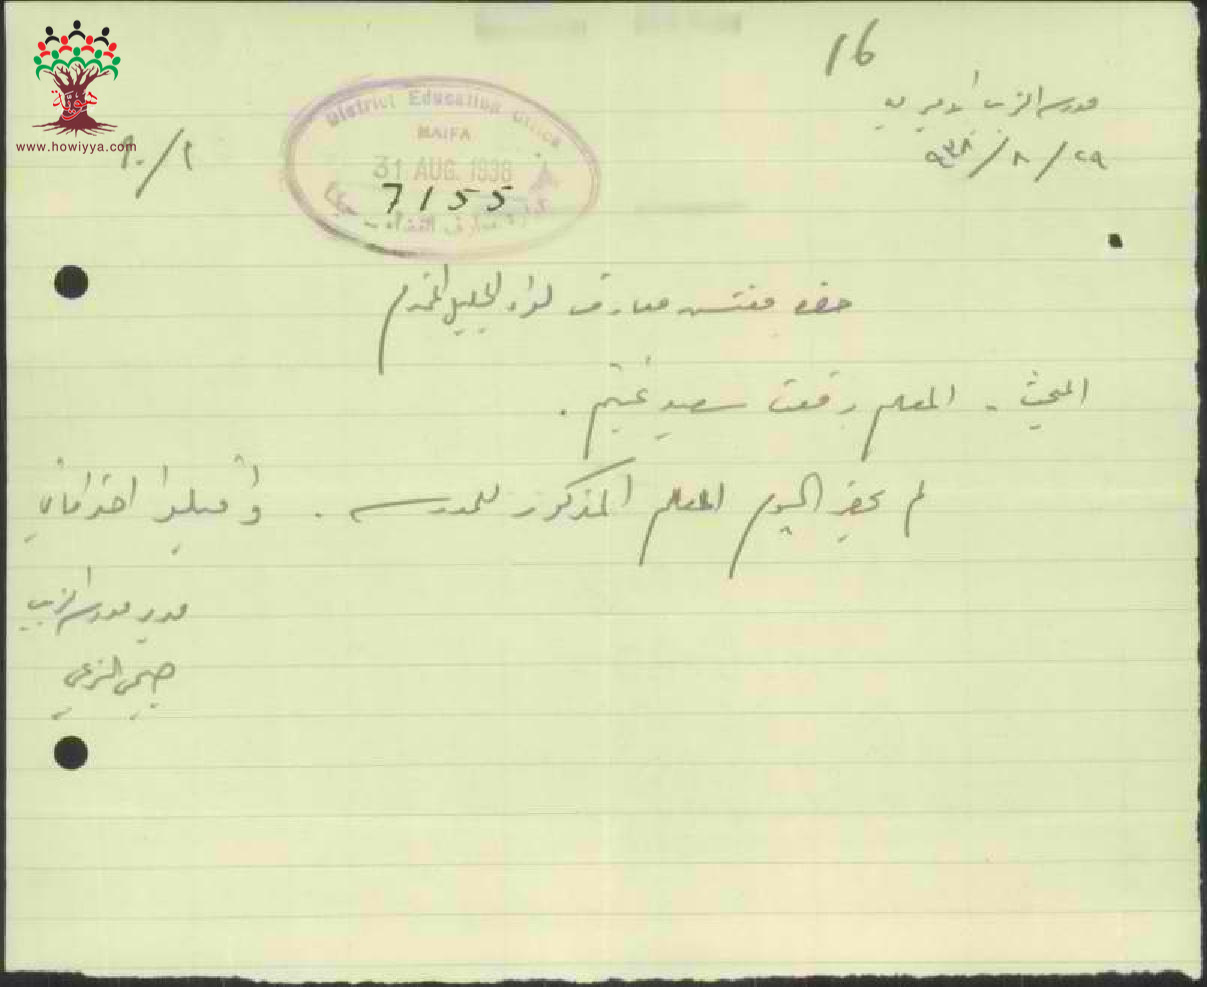 16
مدرسة الزيب الاميرية
٢٩/٨/٩٣٨
هوية
www.howiyya.com
District Education Office
HAIFA
31 AUG. 1938
7155
حضرة مفتش معارف لواء الجليل المحترم
المبحث - المعلم رفعت سعيد غنيم .
لم يحضر اليوم المعلم المذكور للمدرسة . واقبلوا احترامي
مدير مدرسة الزيب